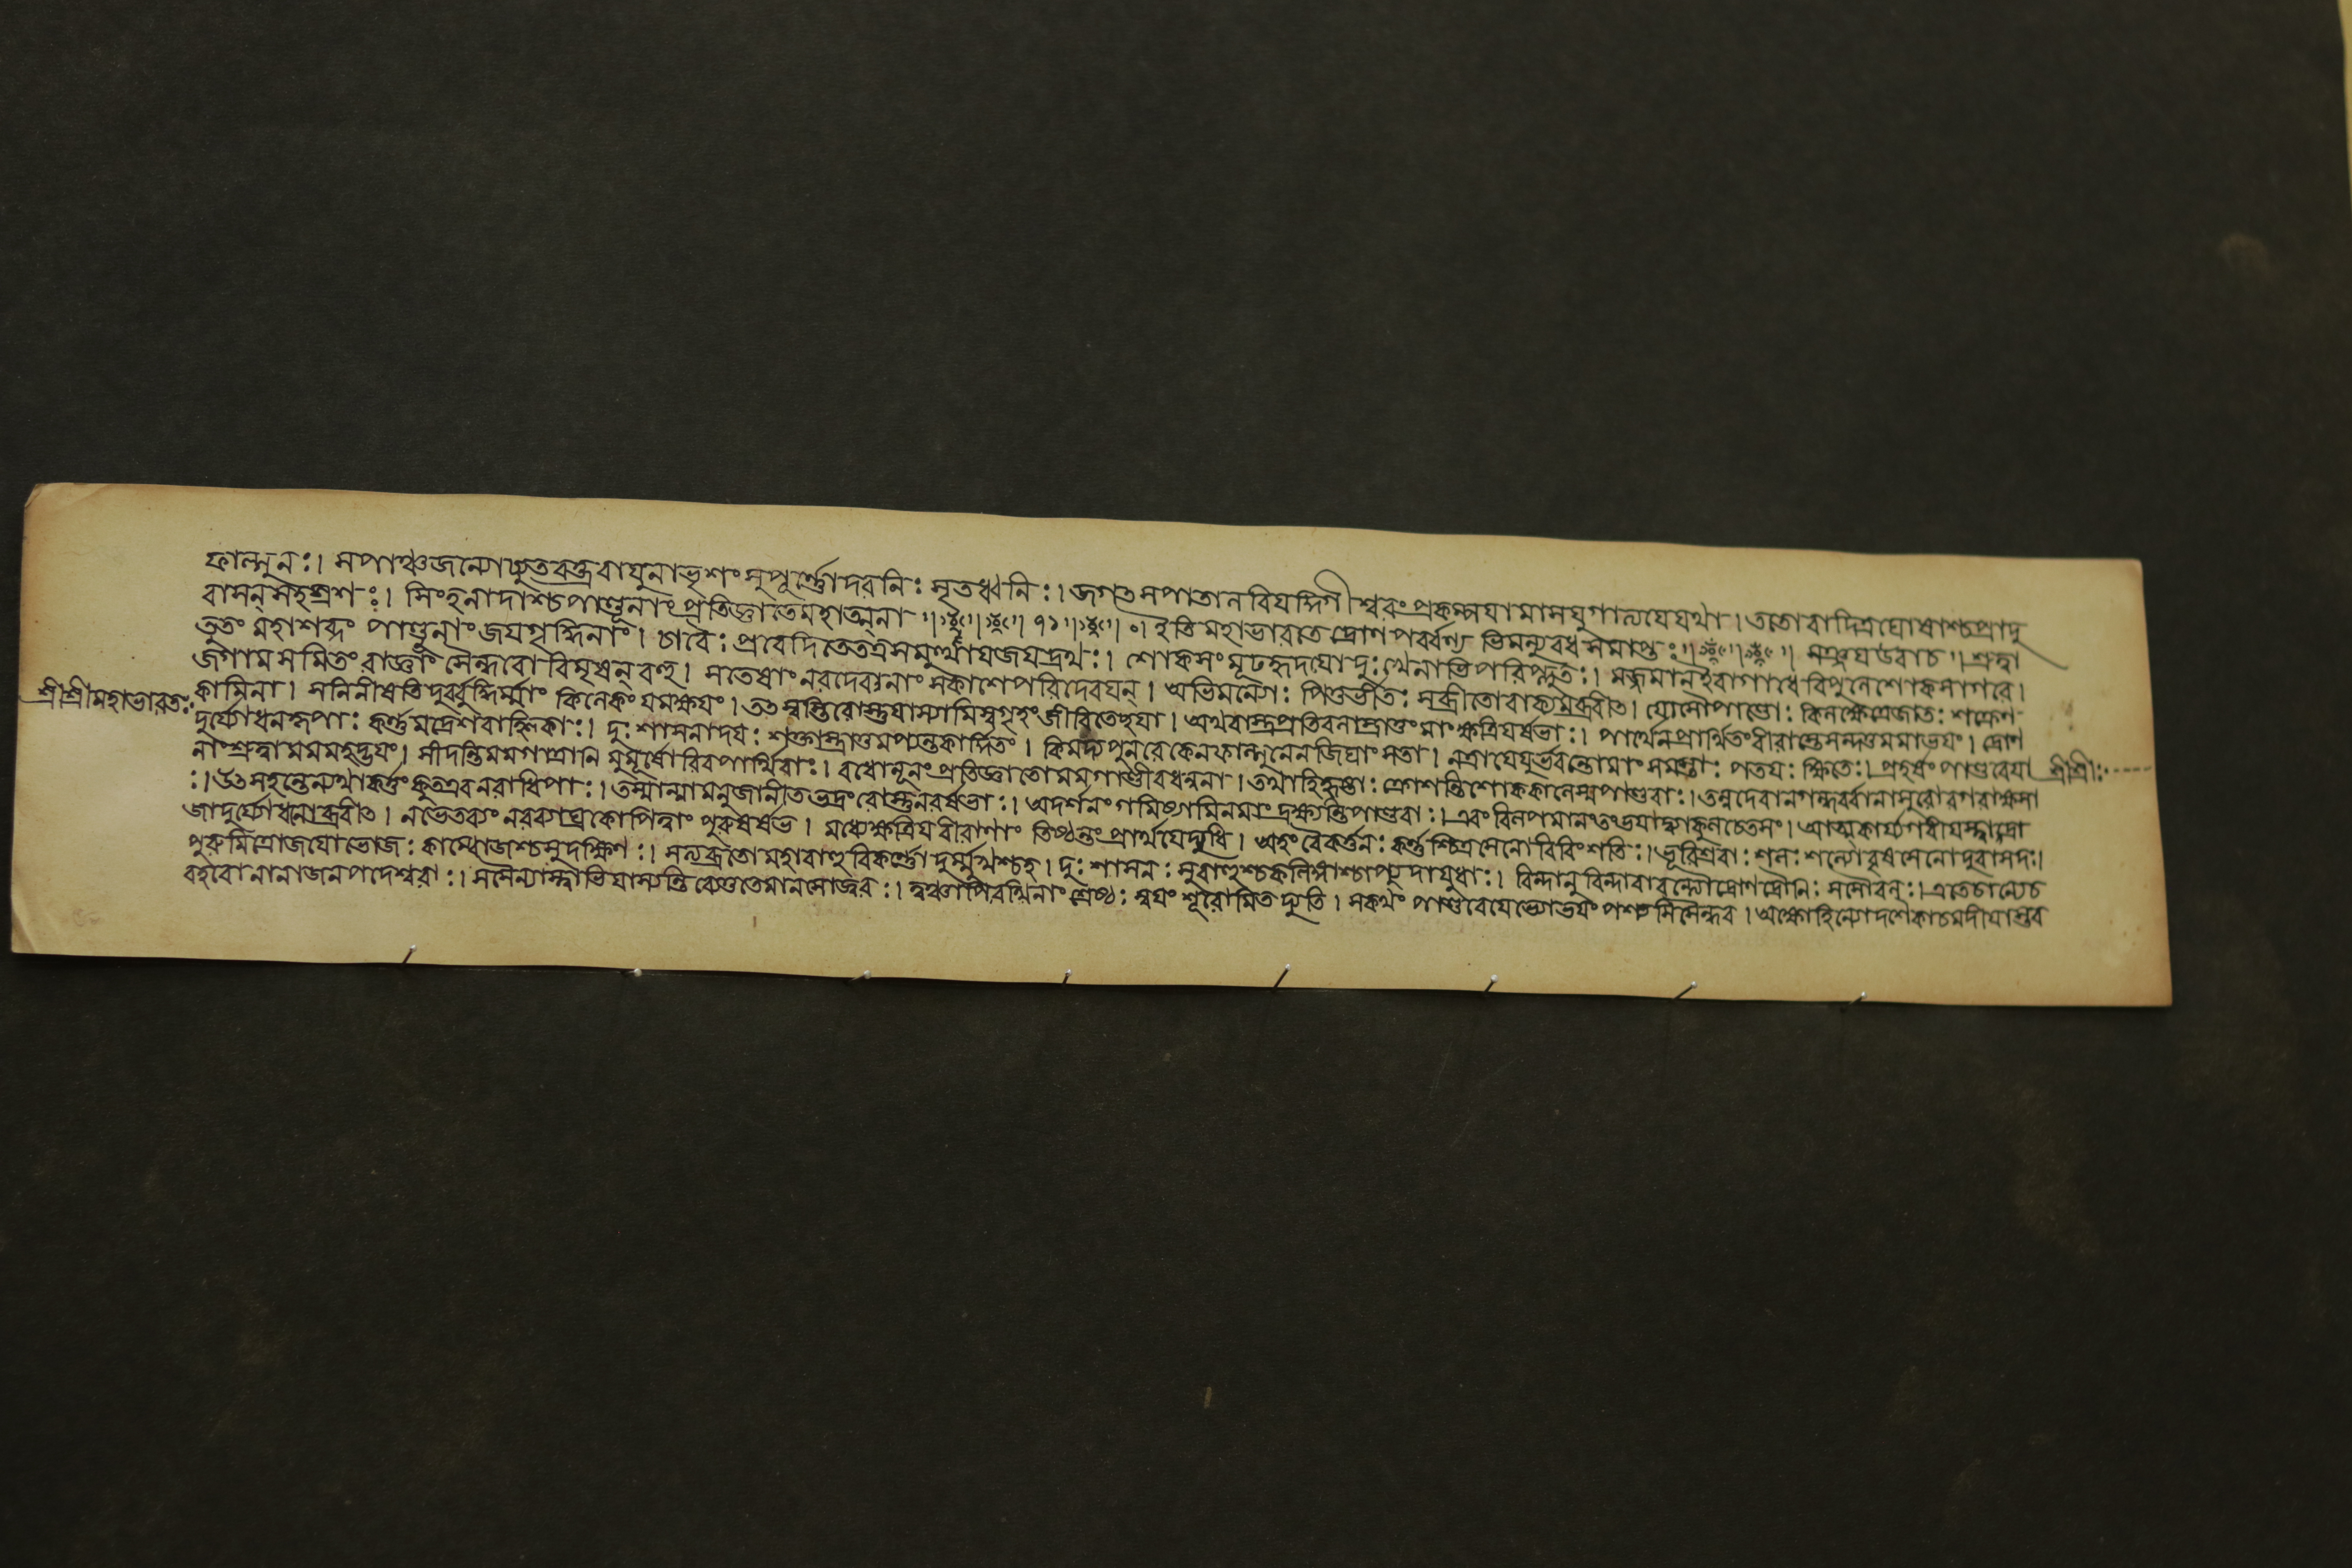 ফাল্গুনঃ। সপাঞ্চজন্যোচ্যুতবক্ত্রবাযুনাভৃশং সুপূর্ণ্ণোদরনিঃসৃতধ্বনিঃ। জগৎসপাতালবিযদ্দিগীশ্বরং প্রকম্পযামাসযুগাত্যযেযথা। ততোবাদিত্রঘোষাশ্চপ্রাদু
বাসন্সহস্রশঃ। সিংহনাদাশ্চপাণ্ডূনাং প্রতিজ্ঞাতেমহাত্মনা ॥ ৭১ ॥ ০। ইতি মহাভারতে দ্রোণপর্ব্বণ্য ভিমন্যুবধ সমাপ্তঃ ॥ সঞ্জযউবাচ ॥ শ্রুত্বা
তুতং মহাশব্দং পাণ্ডূনাং জযগৃদ্ধিনাং। চাবৈঃ প্রবেদিতেতত্রসমুত্থাযজযদ্রথঃ। শোকসংমূঢহৃদযোদুঃখেনাতিপরিপ্লুতঃ। মজ্জমানইবাগাধেবিপুলেশোকসাগরে।
জগামসমিতিং রাজ্ঞাং সৈন্ধবোবিমৃষন্বহু। সতেষাং নরদেবানাং সকাশেপরিদেবযন্। অভিমন্যোঃ পিতুর্ভীতঃ সব্রীতোবাক্যমব্রবীৎ। যোসৌপাণ্ডোঃ কিলক্ষেত্রেজাতঃ শক্রেণ
শ্রীশ্রীমহাভারতঃ কামিনা। সনিনীষতিদুর্বুদ্ধির্ম্মাং কিলৈকং যমক্ষযং। তৎস্বস্তিবোস্তুযাস্যামিস্বগৃহং জীবিতেছযা। অথবাস্ত্রপ্রতিবলাস্ত্রাতুং মাং ক্ষত্রিযর্ষভাঃ। পার্থেনপ্রার্থিতং বীরাস্তেসন্দত্তমমাভযং। দ্রোণ
দুর্য্যোধনকৃপাঃ কর্ণ্ণমদ্রেশবাহ্লিকাঃ। দুঃশাসনাদযঃ শক্তাস্ত্রাতুমপ্যন্তকার্দ্দিতং। কিমঙ্গপুনরেকেনফাল্গুনেনজিঘাং সতা। নত্রাযেযুর্ভবন্তোমাং সমস্তাঃ পতযঃ ক্ষিতেঃ। প্রহর্ষং পাণ্ডবেযা শ্রীশ্রীঃ
নাং শ্রুত্বামমমহদ্ভযং। সীদন্তিমমগাত্রানি মুমূর্ষোরিবপার্থিবাঃ। বধোনূনং প্রতিজ্ঞাতোমমগাণ্ডীবধন্বনা। তথাহিহৃষ্টাঃ ক্রোশন্তিশোককালেস্মপাণ্ডবাঃ। তন্নদেবানগন্ধর্ব্বানাসুরোরগরাক্ষসা
ঃ। উৎসহন্তেন্যথাকর্ত্তুং কুতএবনরাধিপাঃ। তস্মান্মামনুজানীতভদ্রং বোস্তুনরর্ষভাঃ। অদর্শনং গমিষ্যামিনমাং দ্রক্ষ্যন্তিপাণ্ডবাঃ। এবং বিলপমানংতংভযাদ্ব্যাকুলচেতসং। আত্মকার্য্যগরীযস্ত্বাদ্রা
জাদুর্য্যোধনোব্রবীৎ। নভেতব্যং নরব্যাঘ্রকোপিত্বাং পুরুষর্ষভ। মধ্যেক্ষত্রিযবীরাণাং তিষ্ঠন্তং প্রার্থযেদ্যুধি। অহং বৈকর্ত্তনঃ কর্ণ্ণশ্চিত্রসেনোবিবিংশতিঃ। ভূরিশ্রবাঃ শলঃ শল্যোবৃষসেনোদুরাসদঃ।
পুরুমিত্রোজযোভোজঃ কাম্বোজশ্চসুদক্ষিণঃ। সত্যব্রতোমহাবাহুবিকর্ণ্ণোদুর্ম্মুখশ্চহ। দুঃশাসনঃ সুবাহুশ্চকলিঙ্গাশ্চাপ্যুদাযুধাঃ। বিন্দানুবিন্দাবাবন্ত্যৌদ্রোণদ্রৌনিঃ সসৌবলঃ। এতেচান্যেচ
বহবোনানাজনপদেশ্বরাঃ। সসৈন্যাস্ত্বাভিযাস্যন্তিব্যেতুতেমানসোজ্বরঃ। ত্বঞ্চাপিরথিনাং শ্রেষ্ঠঃ স্বযং শূরোমিতদ্যুতি। সকথং পাণ্ডবেযেভ্যোভযং পশ্যসিসৈন্ধব। অক্ষৌহিন্যোদশৈকাচমদীযাস্তব